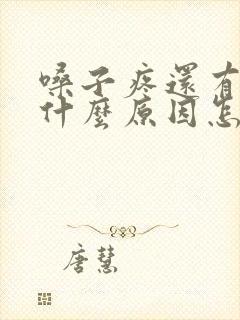 嗓子疼還有
什麼原因怎
唐慧